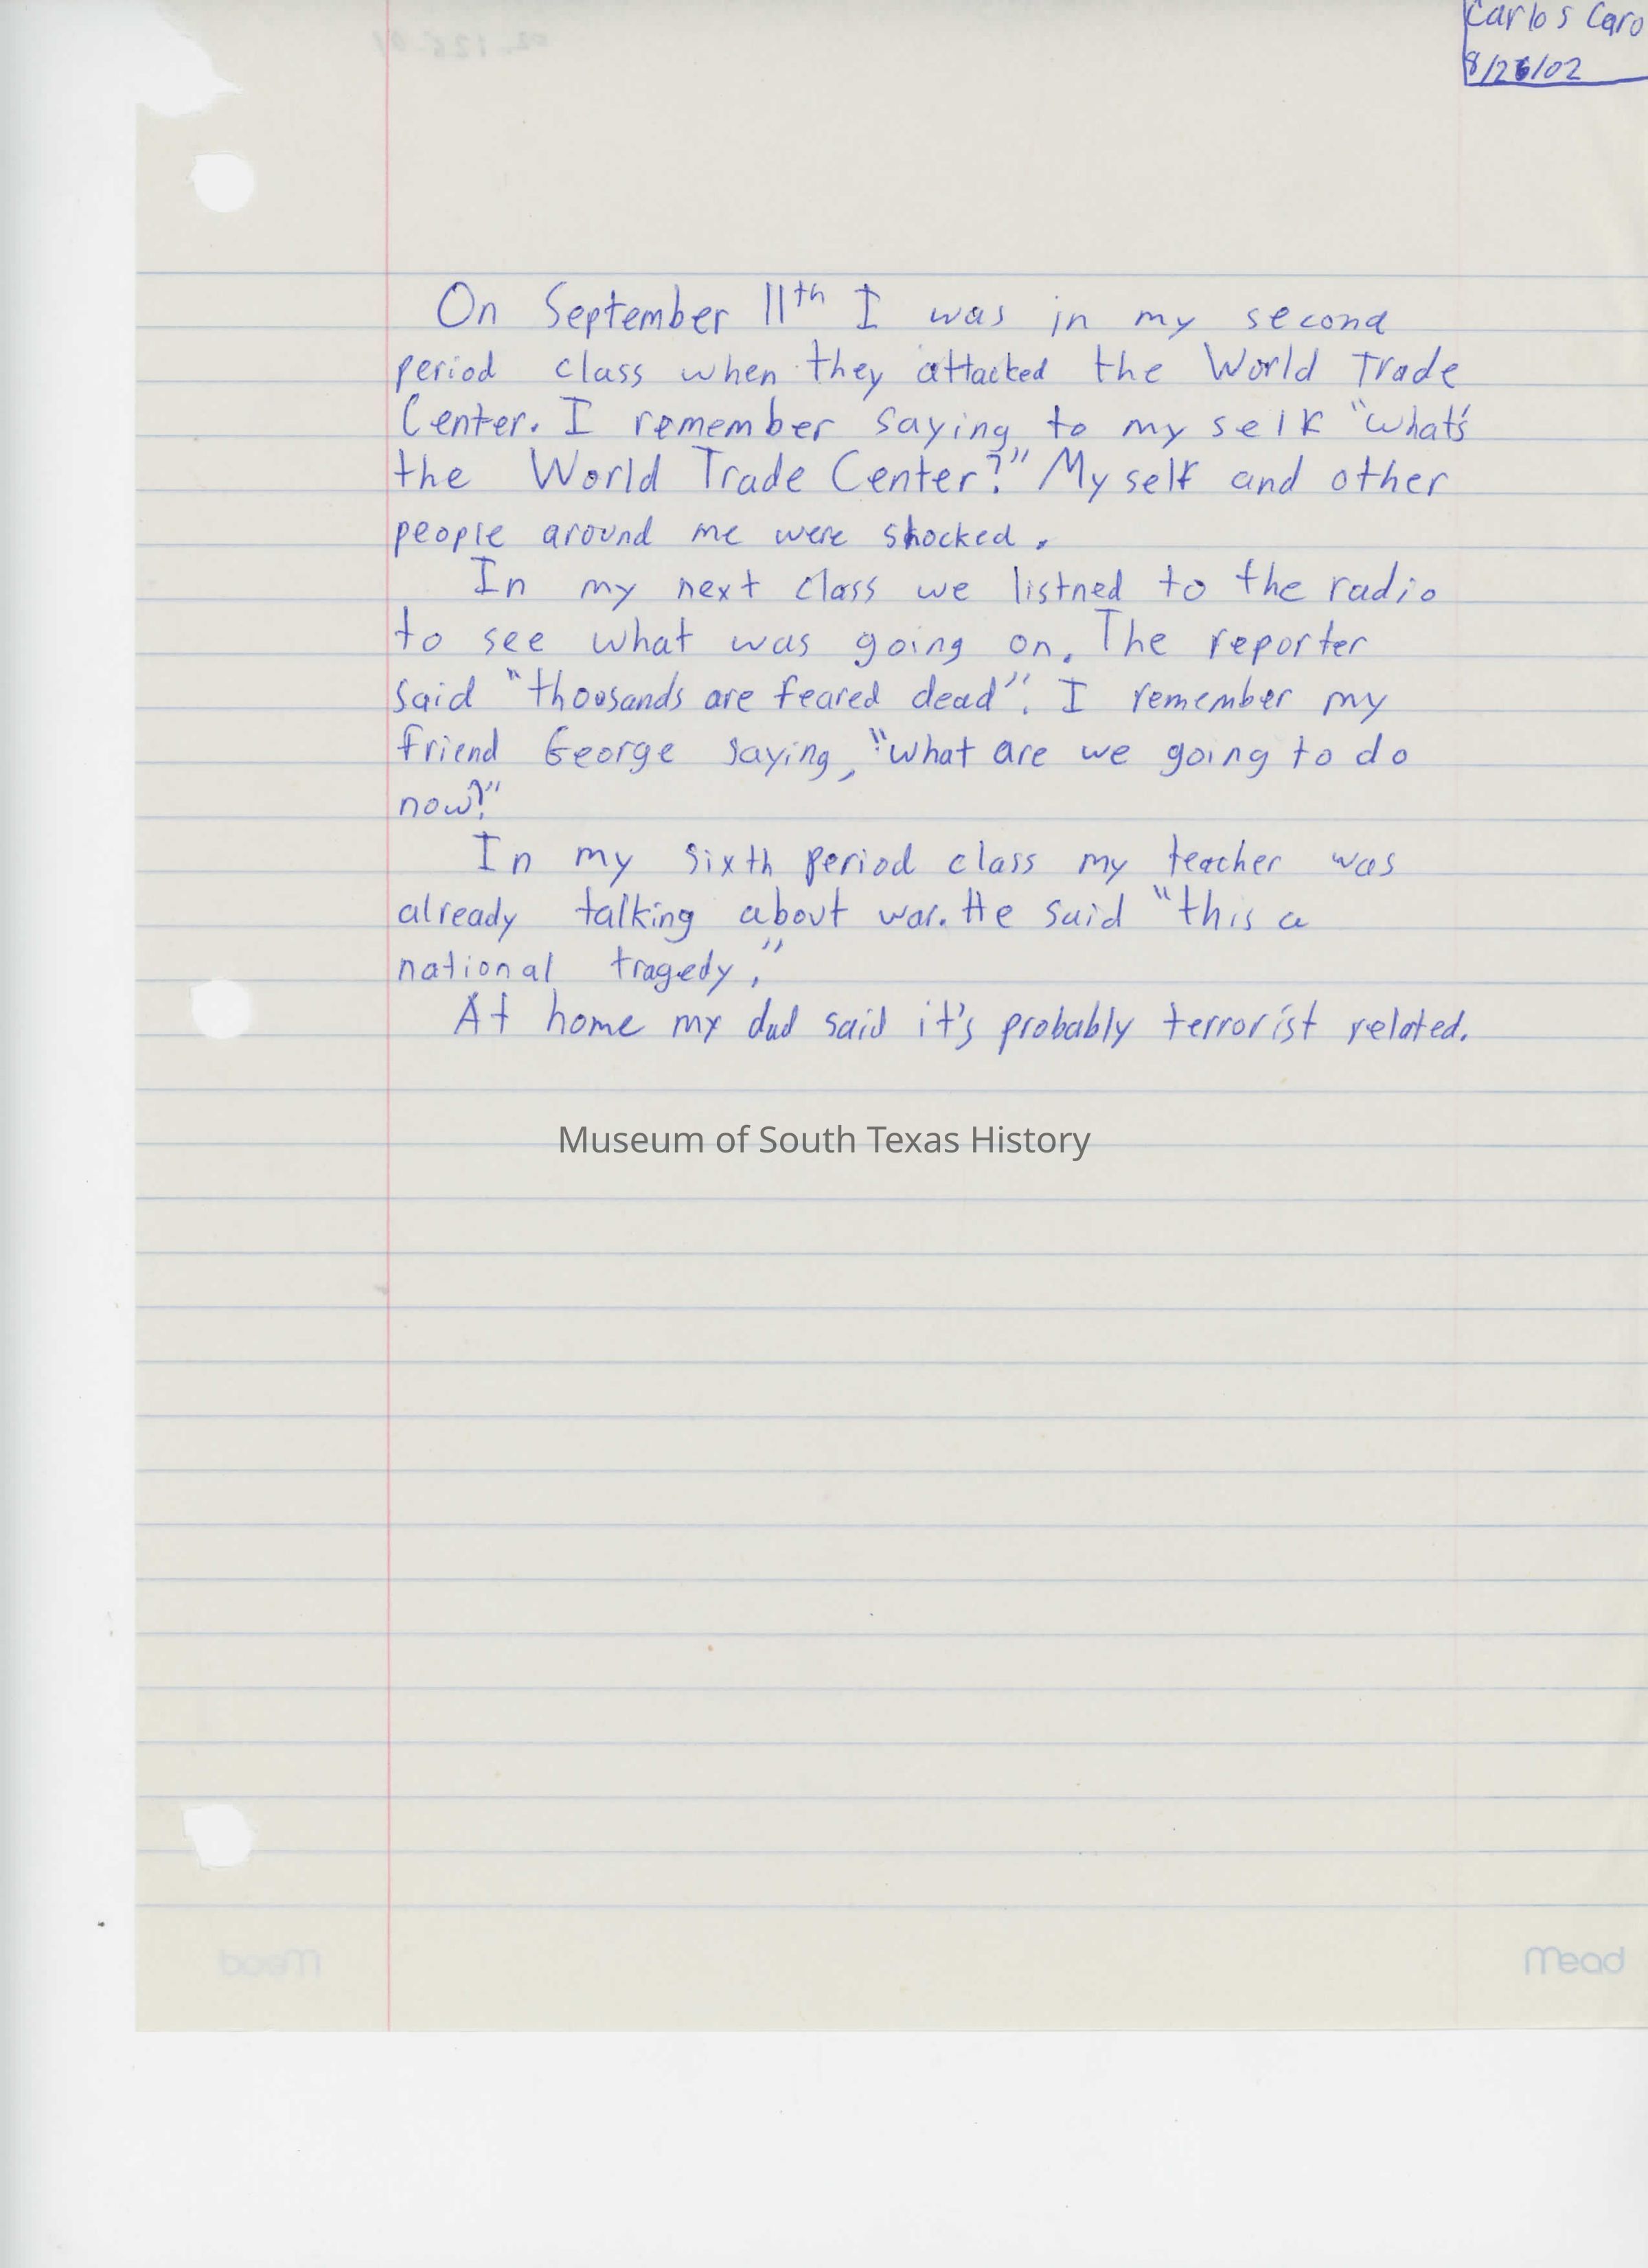 Carlos Caro
8/26/02
On September 11th I was in my second
period class when they attacked the World Trade
Center. I remember saying to my self "what's
the World Trade Center?" My self and other
people around me were shocked.
In my next class we listned to the radio
to see what was going on. The reporter
said "thousands are feared dead". I remember my
friend George saying, "what are we going to do
now?"
In my sixth period class my teacher was
already talking about war. He said "this a
national tragedy."
At home my dad said it's probably terrorist related.
Museum of South Texas History
Mead